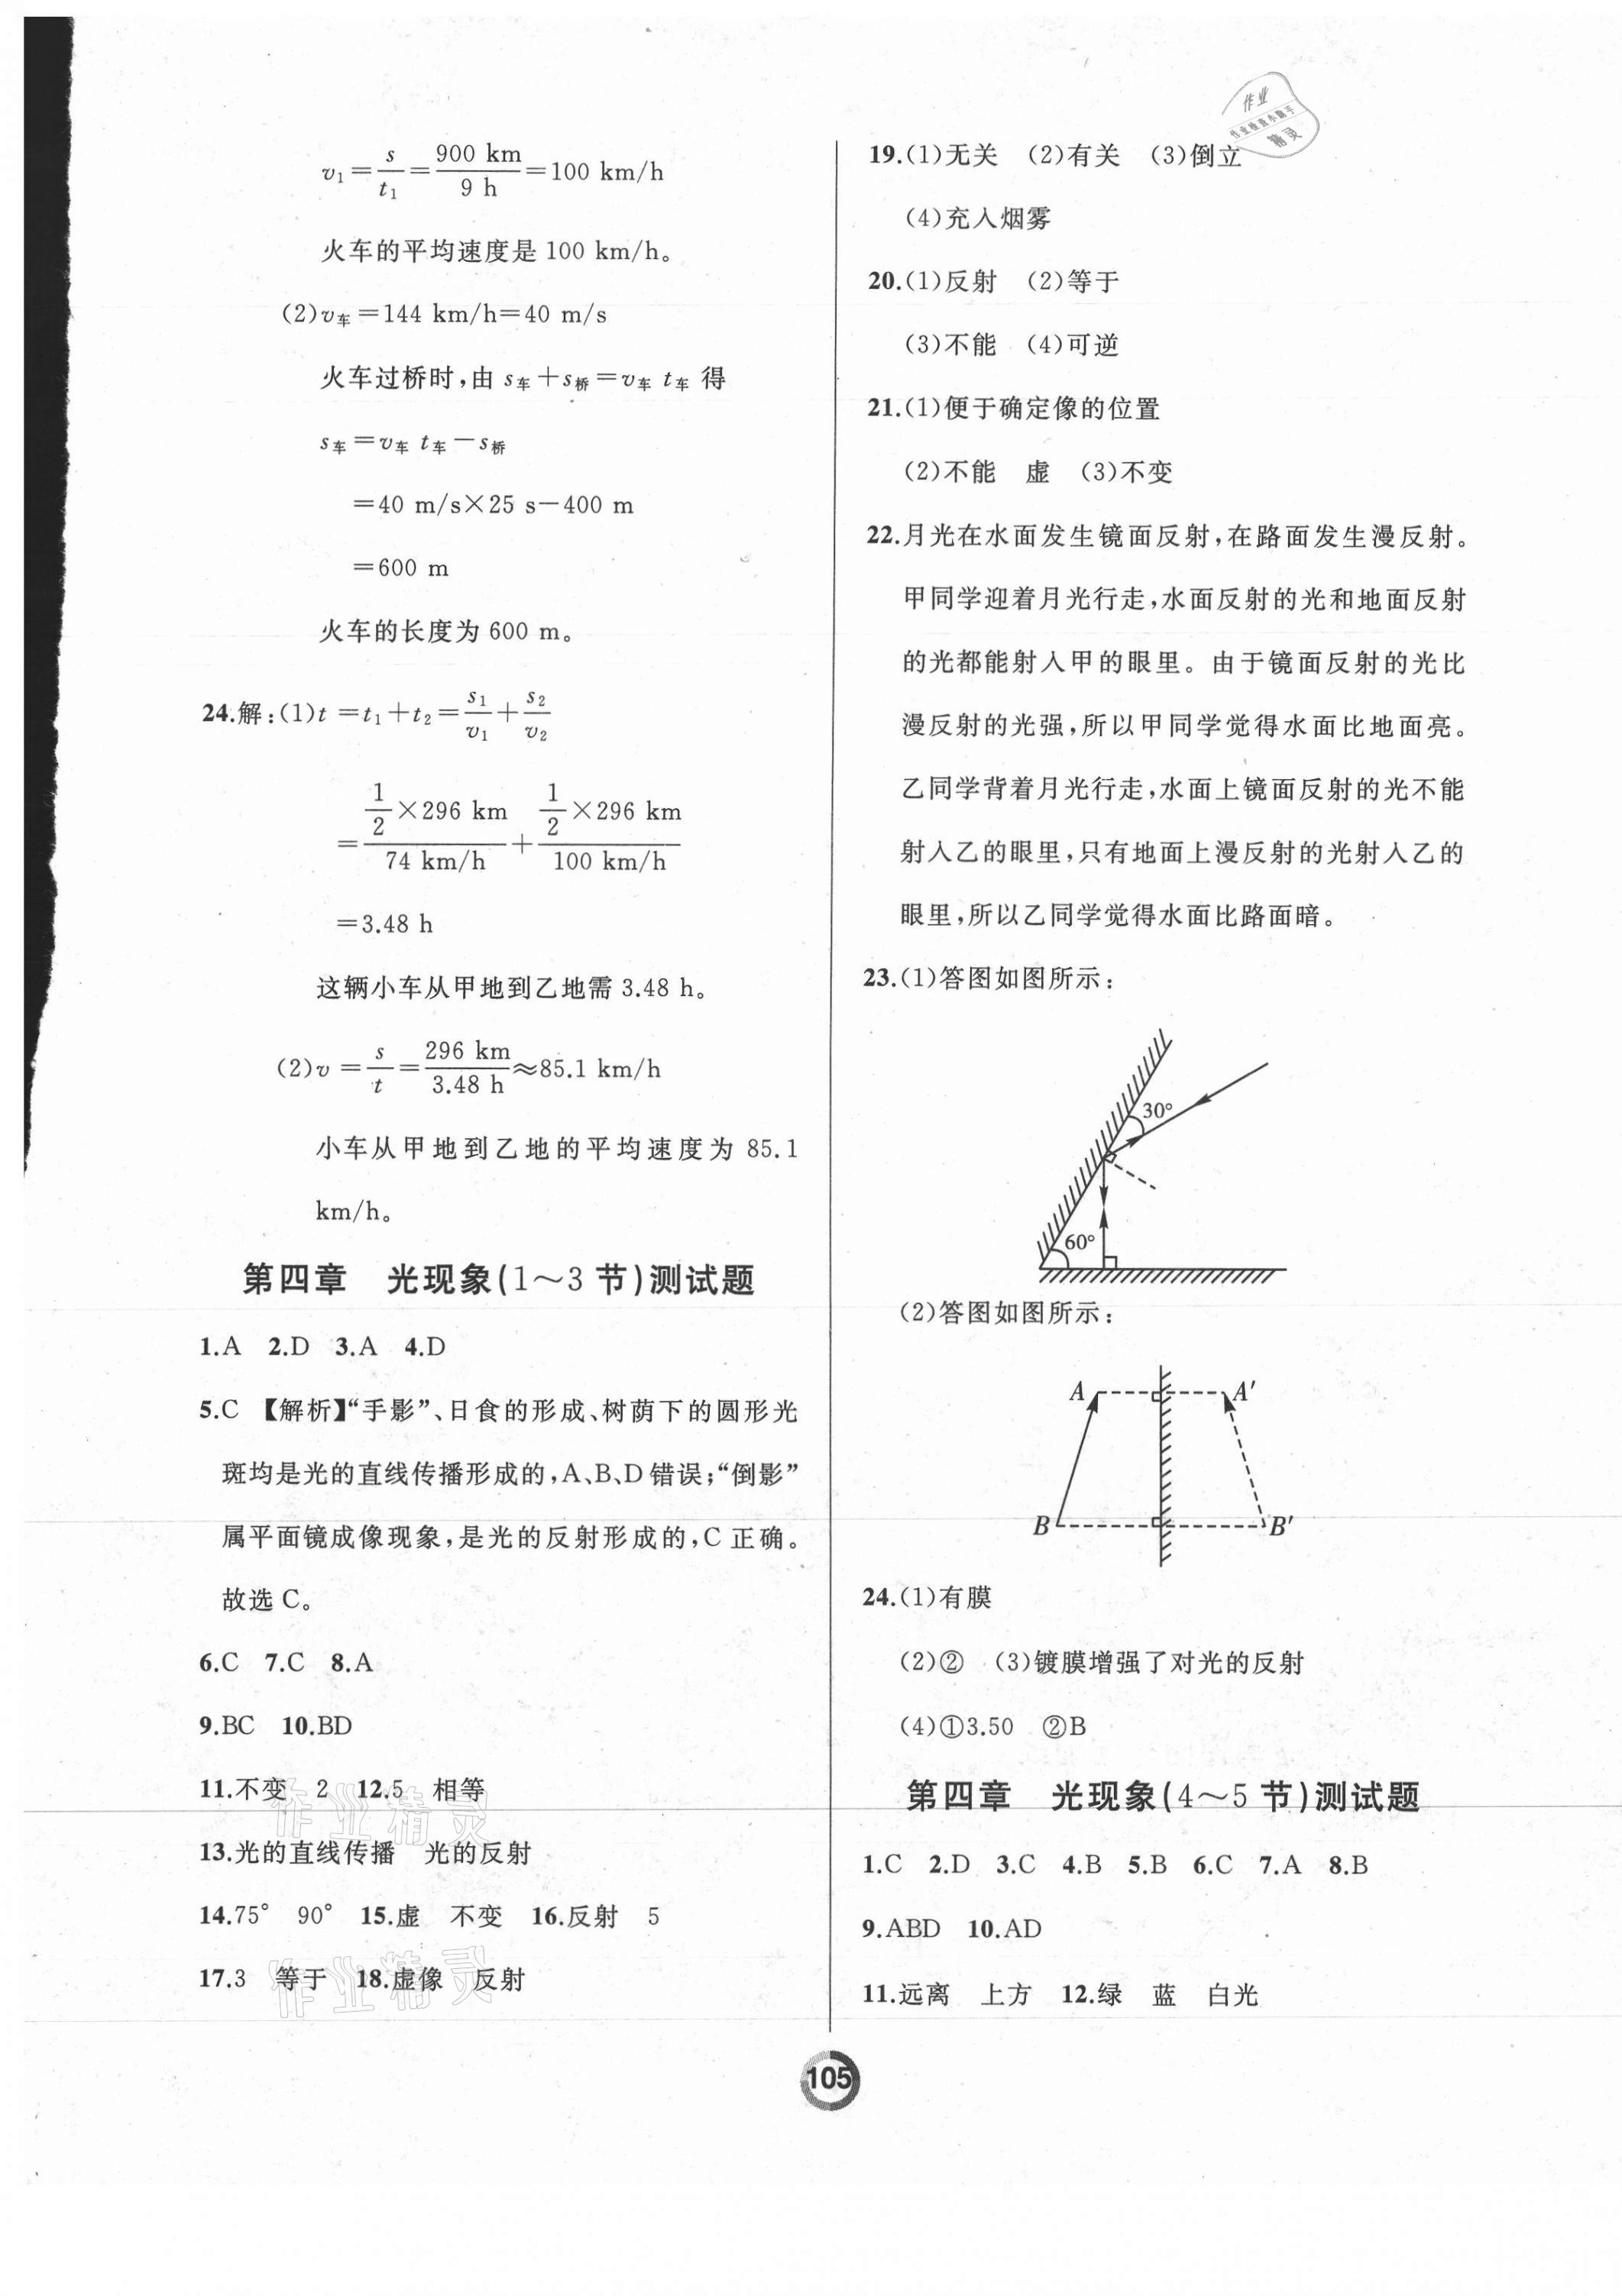 v₁=s/t₁=900 km/9 h=100 km/h
火车的平均速度是 100 km/h。
(2)v车=144 km/h=40 m/s
火车过桥时,由 s车+s桥=v车 t车 得
s车=v车 t车-s桥
=40 m/s×25 s-400 m
=600 m
火车的长度为 600 m。
24.解:(1)t=t₁+t₂=s₁/v₁+s₂/v₂
=(1/2×296 km)/(74 km/h)+(1/2×296 km)/(100 km/h)
=3.48 h
这辆小车从甲地到乙地需 3.48 h。
(2)v=s/t=296 km/3.48 h≈85.1 km/h
小车从甲地到乙地的平均速度为 85.1
km/h。
第四章 光现象(1～3 节)测试题
1.A 2.D 3.A 4.D
5.C 【解析】“手影”、日食的形成、树荫下的圆形光
斑均是光的直线传播形成的,A、B、D 错误;“倒影”
属平面镜成像现象,是光的反射形成的,C 正确。
故选 C。
6.C 7.C 8.A
9.BC 10.BD
11.不变 2 12.5 相等
13.光的直线传播 光的反射
14.75° 90° 15.虚 不变 16.反射 5
17.3 等于 18.虚像 反射
作业精灵
作业精灵
作业
作业检查小助手
精灵
19.(1)无关 (2)有关 (3)倒立
(4)充入烟雾
20.(1)反射 (2)等于
(3)不能 (4)可逆
21.(1)便于确定像的位置
(2)不能 虚 (3)不变
22.月光在水面发生镜面反射,在路面发生漫反射。
甲同学迎着月光行走,水面反射的光和地面反射
的光都能射入甲的眼里。由于镜面反射的光比
漫反射的光强,所以甲同学觉得水面比地面亮。
乙同学背着月光行走,水面上镜面反射的光不能
射入乙的眼里,只有地面上漫反射的光射入乙的
眼里,所以乙同学觉得水面比路面暗。
23.(1)答图如图所示:
30°
60°
(2)答图如图所示:
A A′
B B′
24.(1)有膜
(2)② (3)镀膜增强了对光的反射
(4)①3.50 ②B
第四章 光现象(4～5 节)测试题
1.C 2.D 3.C 4.B 5.B 6.C 7.A 8.B
9.ABD 10.AD
11.远离 上方 12.绿 蓝 白光
105